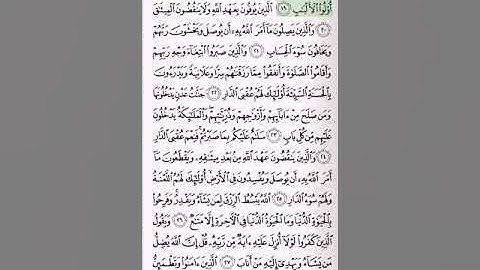 أُولُوا۟ الْأَلْبَٰبِ ١٩ الَّذِينَ يُوفُونَ بِعَهْدِ اللَّهِ وَلَا يَنقُضُونَ الْمِيثَٰقَ
٢٠ وَالَّذِينَ يَصِلُونَ مَا أَمَرَ اللَّهُ بِهِ أَن يُوصَلَ وَيَخْشَوْنَ رَبَّهُمْ
وَيَخَافُونَ سُوءَ الْحِسَابِ ٢١ وَالَّذِينَ صَبَرُوا ابْتِغَاءَ وَجْهِ رَبِّهِمْ
وَأَقَامُوا الصَّلَوٰةَ وَأَنفَقُوا مِمَّا رَزَقْنَٰهُمْ سِرًّا وَعَلَانِيَةً وَيَدْرَءُونَ
بِالْحَسَنَةِ السَّيِّئَةَ أُولَٰئِكَ لَهُمْ عُقْبَى الدَّارِ ٢٢ جَنَّٰتُ عَدْنٍ يَدْخُلُونَهَا
وَمَن صَلَحَ مِنْ ءَابَائِهِمْ وَأَزْوَٰجِهِمْ وَذُرِّيَّٰتِهِمْ وَالْمَلَٰئِكَةُ يَدْخُلُونَ
عَلَيْهِم مِّن كُلِّ بَابٍ ٢٣ سَلَٰمٌ عَلَيْكُم بِمَا صَبَرْتُمْ فَنِعْمَ عُقْبَى الدَّارِ
٢٤ وَالَّذِينَ يَنقُضُونَ عَهْدَ اللَّهِ مِن بَعْدِ مِيثَٰقِهِ وَيَقْطَعُونَ مَا
أَمَرَ اللَّهُ بِهِ أَن يُوصَلَ وَيُفْسِدُونَ فِي الْأَرْضِ أُولَٰئِكَ لَهُمُ اللَّعْنَةُ
وَلَهُمْ سُوءُ الدَّارِ ٢٥ اللَّهُ يَبْسُطُ الرِّزْقَ لِمَن يَشَاءُ وَيَقْدِرُ وَفَرِحُوا
بِالْحَيَوٰةِ الدُّنْيَا وَمَا الْحَيَوٰةُ الدُّنْيَا فِي الْآخِرَةِ إِلَّا مَتَٰعٌ ٢٦ وَيَقُولُ
الَّذِينَ كَفَرُوا لَوْلَا أُنزِلَ عَلَيْهِ ءَايَةٌ مِّن رَّبِّهِ قُلْ إِنَّ اللَّهَ يُضِلُّ
مَن يَشَاءُ وَيَهْدِي إِلَيْهِ مَنْ أَنَابَ ٢٧ الَّذِينَ ءَامَنُوا وَتَطْمَئِنُّ